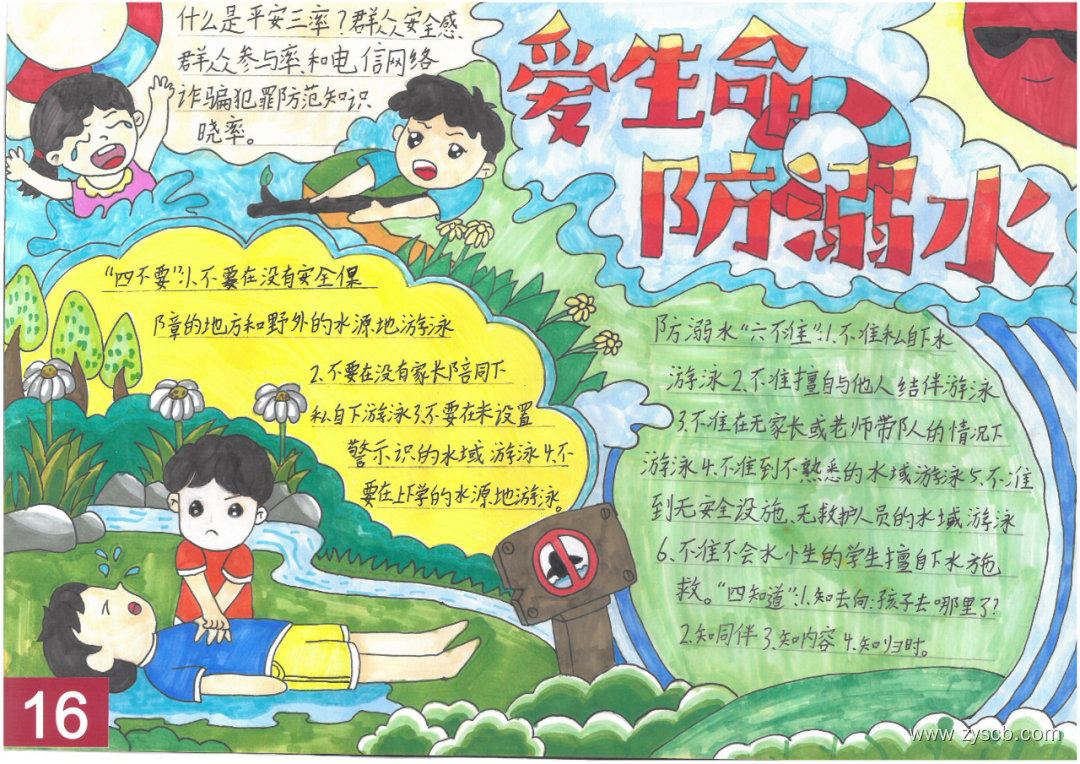 什么是平安三率？群众安全感、
群众参与率、和电信网络
诈骗犯罪防范知识
晓率。
爱生命
防溺水
“四不要”:1、不要在没有安全保
障的地方和野外的水源地游泳
2、不要在没有家长陪同下
私自下游泳3、不要在未设置
警示识的水域游泳4、不
要在上下学的水源地游泳。
防溺水“六不准”:1、不准私自下水
游泳2、不准擅自与他人结伴游泳
3、不准在无家长或老师带队的情况下
游泳4、不准到不熟悉的水域游泳5、不准
到无安全设施、无救护人员的水域游泳
6、不准不会水小生的学生擅自下水施
救。“四知道”:1、知去向:孩子去哪里了?
2、知同伴3、知内容4、知归时。
16
www.zyscb.com